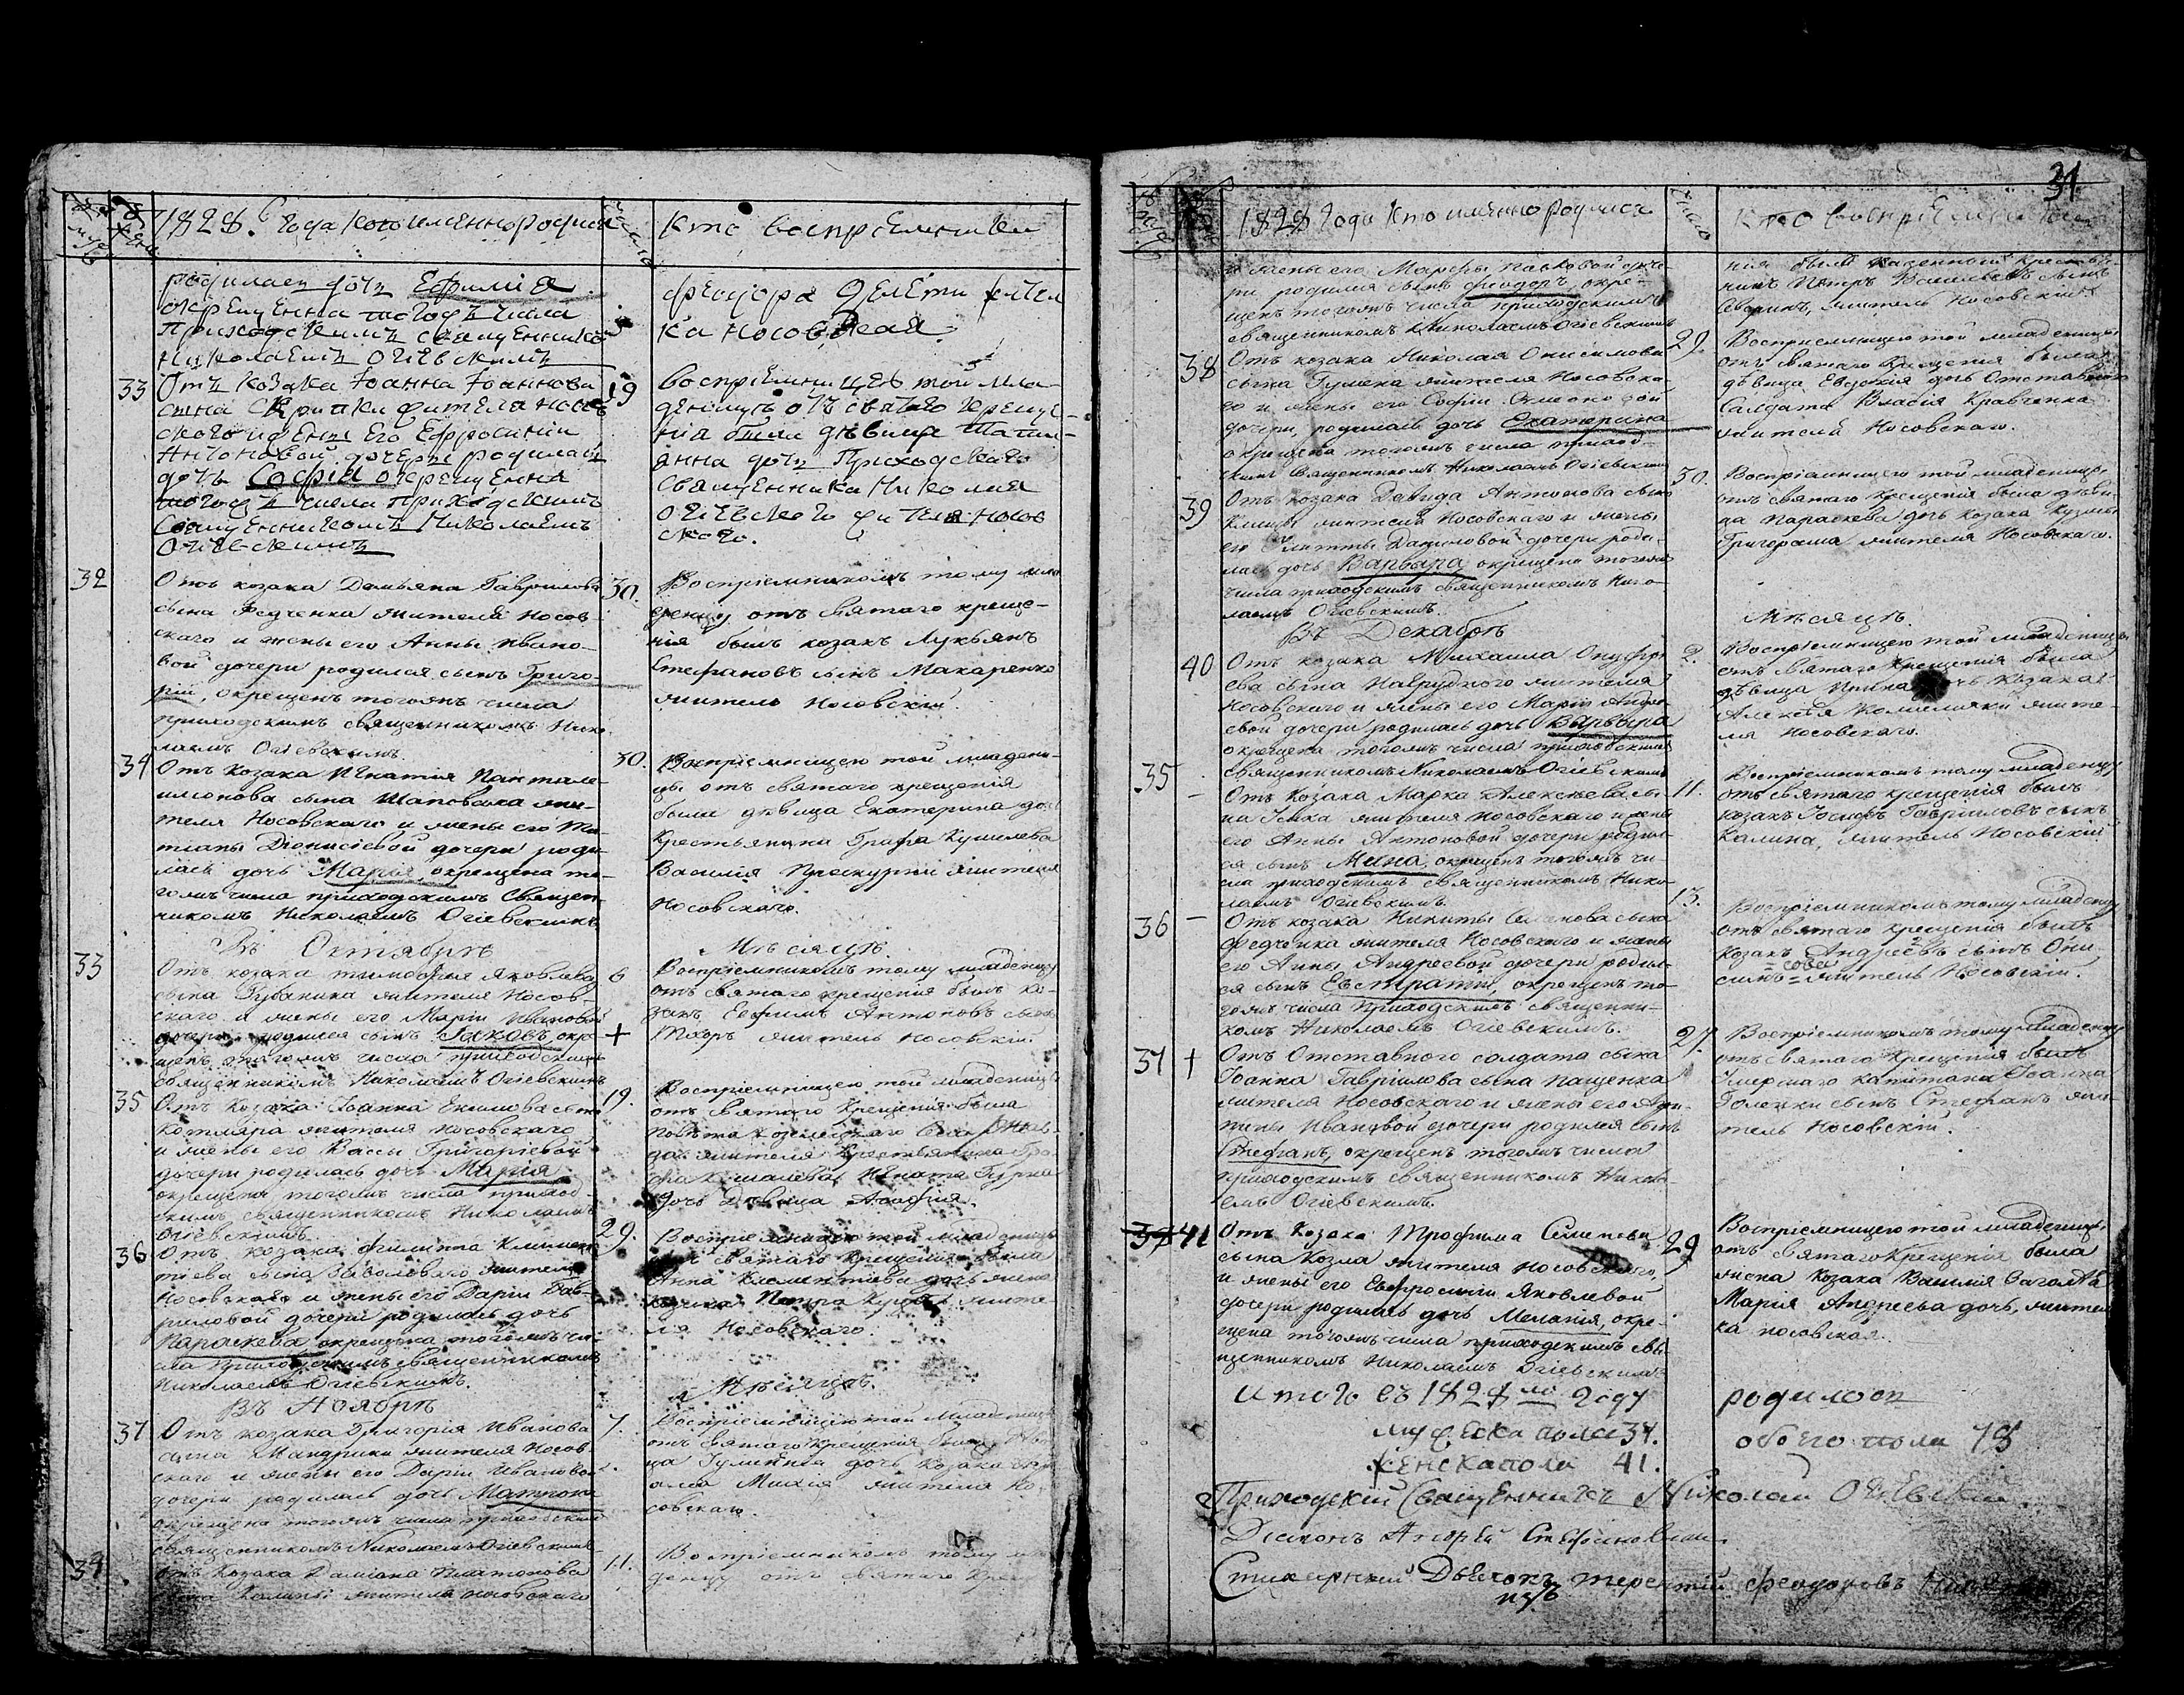 1828. Года кого именно родился
число
кто воспрiемники
родилась дочь Ефимiя
окрещенна тогож числа
Приходскимъ священнико
Николаемъ Огiевскимъ
Феодора жител
ка носовская.
33
Отъ козака Iоанна Iоаннова
сына Скрипки жителя носов
ского и жены его Ефросинiи
дочери родилась
дочь Софiя окрещенна
тогож числа приходскимъ
Священникомъ Николаемъ
Огiевскимъ
19
воспрiемницею той мла-
деницъ отъ святаго креще-
нiя была девица Татiи-
анна дочь Приходскаго
священника Николая
Огiевского жителя носов
ского.
32
Отъ козака Демьяна Гаврилова
сына Федченка жителя Носов-
скаго и жены его Анны Ивано-
вой дочери родился сынъ Григо-
рiй, окрещенъ тогожъ числа
приходскимъ священникомъ Нико
лаемъ Огiевскимъ.
30.
Воспрiемникомъ тому мла
денцу отъ святаго креще-
нiя былъ козакъ Лукьянъ
Стефановъ сынъ Макаренко
житель Носовскiй.
34
Отъ Козака Игнатiя Пантеле-
имонова сына Шаповала жи-
теля Носовскаго и жены его Та-
тiаны Дiонисiевой дочери роди
лась дочь Марiя, окрещена то-
гожъ числа приходскимъ Священ-
никомъ Николаемъ Огiевскимъ
30.
Воспрiемницею той младени-
цы отъ святаго крещенiя
была девица Екатерина дочь
Крестьянина Графа Кушелева
Василiя жителя
Носовскаго.
Въ Октябре
Месяце.
33
Отъ козака Тимофея Яковлева
сына Губаника жителя Носов-
скаго и жены его Марiи Ивановой
дочери родился сынъ Iаковъ, окре-
щенъ тогожъ числа приходскимъ
священникомъ Николаемъ Огiевскимъ
6
+
Воспрiемникомъ тому младенцу
отъ святаго крещенiя былъ ко-
закъ Ефимъ Антоновъ сынъ
Тхоръ житель Носовскiй.
35
Отъ Козака Iоанна Екимова сына
Котляра жителя Носовскаго
и жены его Вассы Григорiевой
дочери родилась дочь Марiя
окрещена тогожъ числа приход-
скимъ священникомъ Николаемъ
Огiевскимъ.
19.
Воспрiемницею той младеницы
отъ Святаго Крещенiя была
жителя Крестьянина Гра-
фа Кушелева Игната
дочь девица Агафiя.
36
Отъ козака Филиппа Климен-
тiева сына жителя
Носовскаго и жены его Дарiи Гав-
риловой дочери родилась дочь
Параскева окрещена тогожъ чи-
сла приходскимъ священникомъ
Николаемъ Огiевскимъ.
29.
Воспрiемницею той младеницы
отъ святаго крещенiя была
Анна Климентiева дочь жена
козака Петра жите
ля Носовскаго.
Въ Ноябре
Месяце.
37
Отъ козака Григорiя Иванова
сына Мандрики жителя Носов-
скаго и жены его Дарiи Ивановой
дочери родилась дочь Матрона
окрещена тогожъ числа приходскимъ
священникомъ Николаемъ Огiевскимъ
7.
Воспрiемницею той младеницы
отъ святаго крещенiя была
дочь козака
жителя Но
совскаго.
34
Отъ Козака Дамiана Платонова
сына жителя носовскаго
11.
Воспрiемникомъ тому мла
денцу отъ святаго Креще
31
1828 Года Кто именно родился
число
Кто воспрiемники
и жены его Марфы дочe-
ри родился сынъ Феодоръ, окре-
щенъ тогожъ числа приходскимъ
священникомъ Николаемъ Огiевскимъ
нiя былъ казенный крестья-
нинъ Петръ Васильевъ сынъ
житель Носовскiй.
38
Отъ козака Николая Онисимова
сына Гумена жителя Носовска-
го и жены его Софiи
дочери, родилась дочь Екатерина
окрещена тогожъ числа приход-
скимъ Священникомъ Николаемъ Огiевскимъ
29.
Воспрiемницею той младеницы
отъ святаго крещенiя была
девица Евдокiя дочь Отставнаго
Салдата Власiя Кравченка
жителя Носовскаго.
39
Отъ козака Давида Антонова сына
жителя Носовскаго и жены
его Данiловой дочери роди-
лась дочь Варвара окрещена тогожъ
числа приходскимъ священникомъ Нико-
лаемъ Огiевскимъ.
30.
Воспрiемницею той младеницы
отъ святаго крещенiя была деви-
ца Параскева дочь козака Кузмы
Григораша жителя Носовскаго.
Въ Декабре
Месяце.
40
Отъ козака Михаила Онуфрi-
ева сына Наврудного жителя
Носовскаго и жены его Марiи Андре-
евой дочери родилась дочь Варвара
окрещена тогожъ числа приходскимъ
священникомъ Николаемъ Огiевскимъ
2.
Воспрiемницею той младеницы
отъ святаго крещенiя была
девица Ирина дочь Козака
Алексея жите-
ля Носовскаго.
35
Отъ Козака Марка Алексеева сы-
на жителя Носовскаго и жены
его Анны Антоновой дочери родил-
ся сынъ Мина, окрещенъ тогожъ чи-
сла приходскимъ священникомъ Нико-
лаемъ Огiевскимъ.
11.
Воспрiемникомъ тому младенцу
отъ святаго крещенiя былъ
козакъ Iосифъ Гавриловъ сынъ
Калина, житель Носовскiй
36
Отъ козака Никиты сына
Федченка жителя Носовскаго и жены
его Анны Андреевой дочери родил-
ся сынъ Евстратiй, окрещенъ то-
гожъ числа приходскимъ священни-
комъ Николаемъ Огiевскимъ.
13.
Воспрiемникомъ тому младенцу
отъ святаго крещенiя былъ
козакъ Андреевъ сынъ
житель Носовскiй.
37
+
Отъ Отставного солдата сына
Iоанна Гаврiилова сына Пащенка
жителя Носовскаго и жены его
Ивановой дочери родился сынъ
Стефанъ, окрещенъ тогожъ числа
приходскимъ священникомъ Никола-
емъ Огiевскимъ.
27.
Воспрiемникомъ тому младенцу
отъ святаго Крещенiя былъ
Умершаго капитана Iоанна
сынъ Стефанъ жи-
тель Носовскiй.
41
Отъ Козака Трофима Семенова
сына Козла жителя Носовскаго,
и жены его Евфросинiи Яковлевой
дочери родилась дочь Меланiя, окре-
щена тогожъ числа приходскимъ свя-
щенникомъ Николаемъ Огiевскимъ
29
Воспрiемницею той младеницы
отъ святаго Крещенiя была
жена Козака Василiя
Марiя Андреева дочь, житель
ка носовская.
Итого въ 1828 году
родилось
мужеска пола 37.
женска пола 41.
обоего пола 78
Приходскiй Священникъ Николай Огiевскiй
Дiяконъ Андрей Стефановичъ
Стихарный Дьячокъ Терентiй Феодоровъ